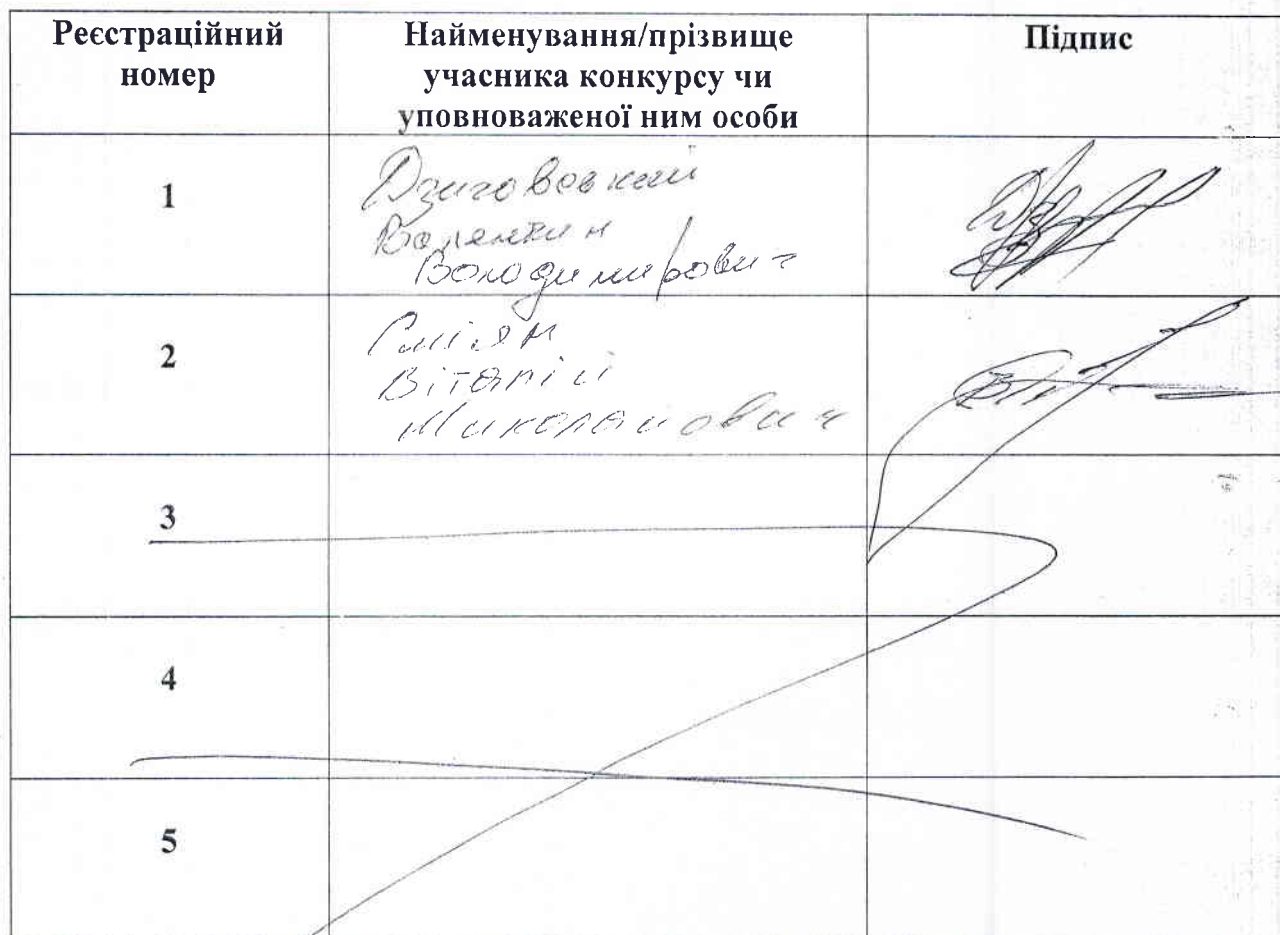 Реєстраційний
номер
Найменування/прізвище
учасника конкурсу чи
уповноваженої ним особи
Підпис
1
Дзиговський
Валентин
Володимирович
2
Сміян
Віталій
Миколайович
3
4
5